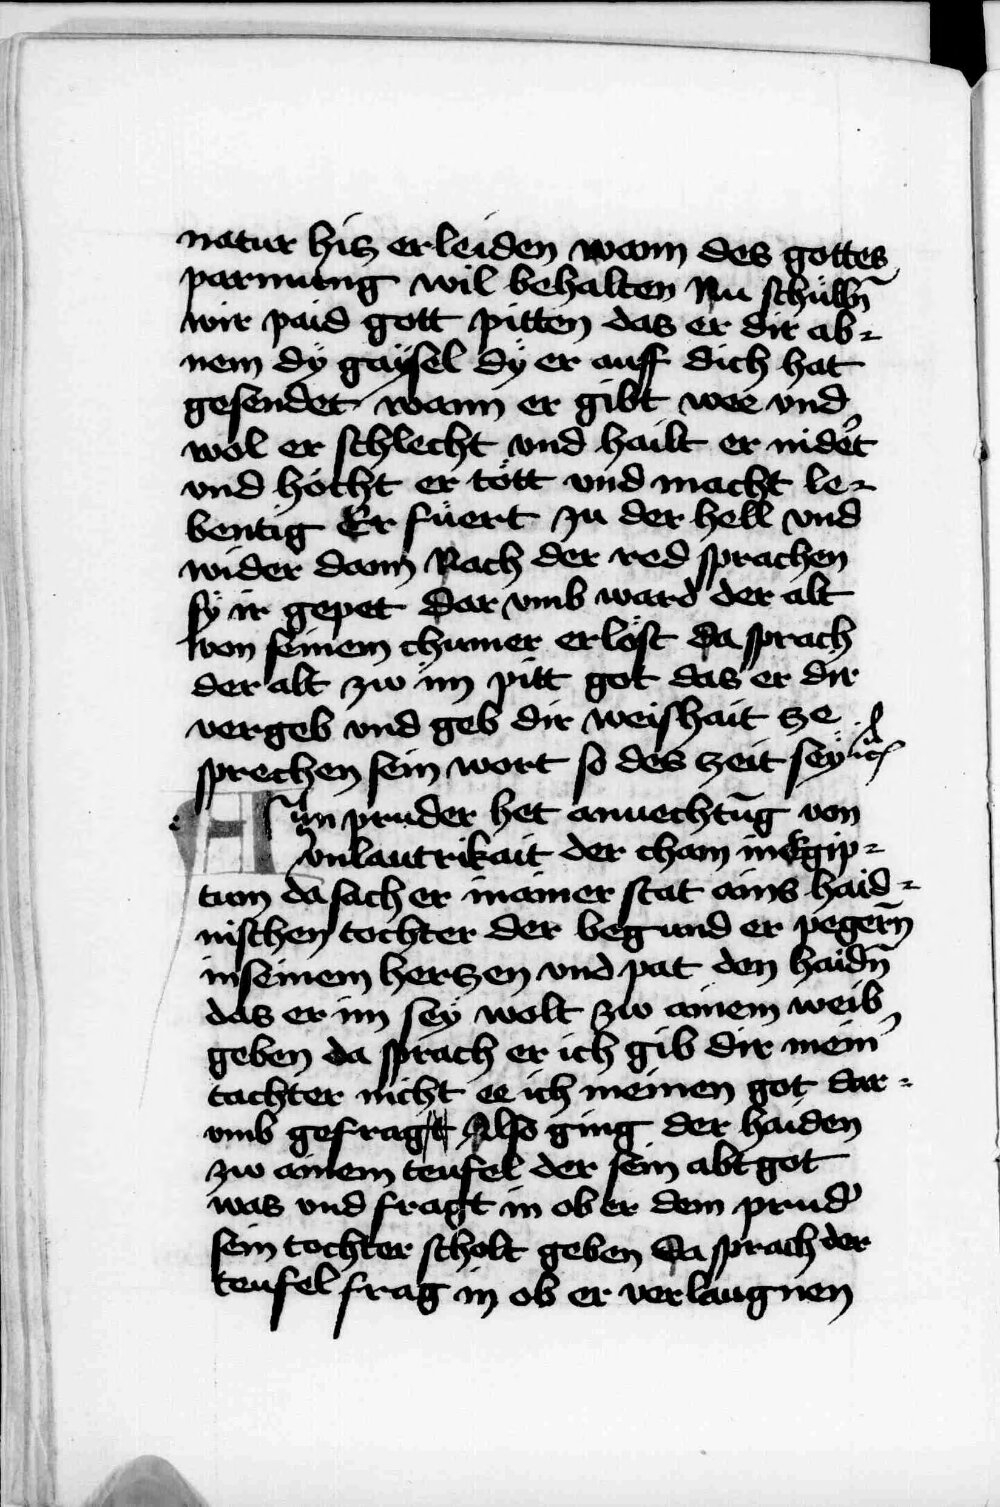 natur hiz erleiden wann des gottes
parmung wil behalten Nu schülln̄
wir paid gott pitten das er dir ab-
nem dÿ gaÿsel dÿ er auff dich hat
gesendet wann er gibt wee vnd
wol er schlecht vnd hailt er nider̛t
vnd höcht er tött vnd macht le-
bentig Er füert zu der hell vnd
wider dann Nach der red sprachen
sÿ ir gepet Dar vmb ward der alt
von seinem chumer erlöst Da sprach
der alt zw im pitt got das er dir
vergeb vnd geb dir weishait ze
sprechen sein wort so des zeit seÿ
Ain pruder het anuechtūg von
vnlautrikait der cham in Egip-
tum da sach er in ainer stat ains haid-
nischen tochter der begund er pegern̄
in seinem herzen vnd pat den haidn̄
das er im seÿ wolt zw ainem weib
geben da sprach er ich gib dir mein
tachter nicht ee ich meinen got dar-
vmb gefragt Also ging der haiden
zw ainem teufel der sein abtgot
was vnd fragt in ob er dem prud̛
sein tochter scholt geben Da sprach der
teufel frag in ob er verlaugnen